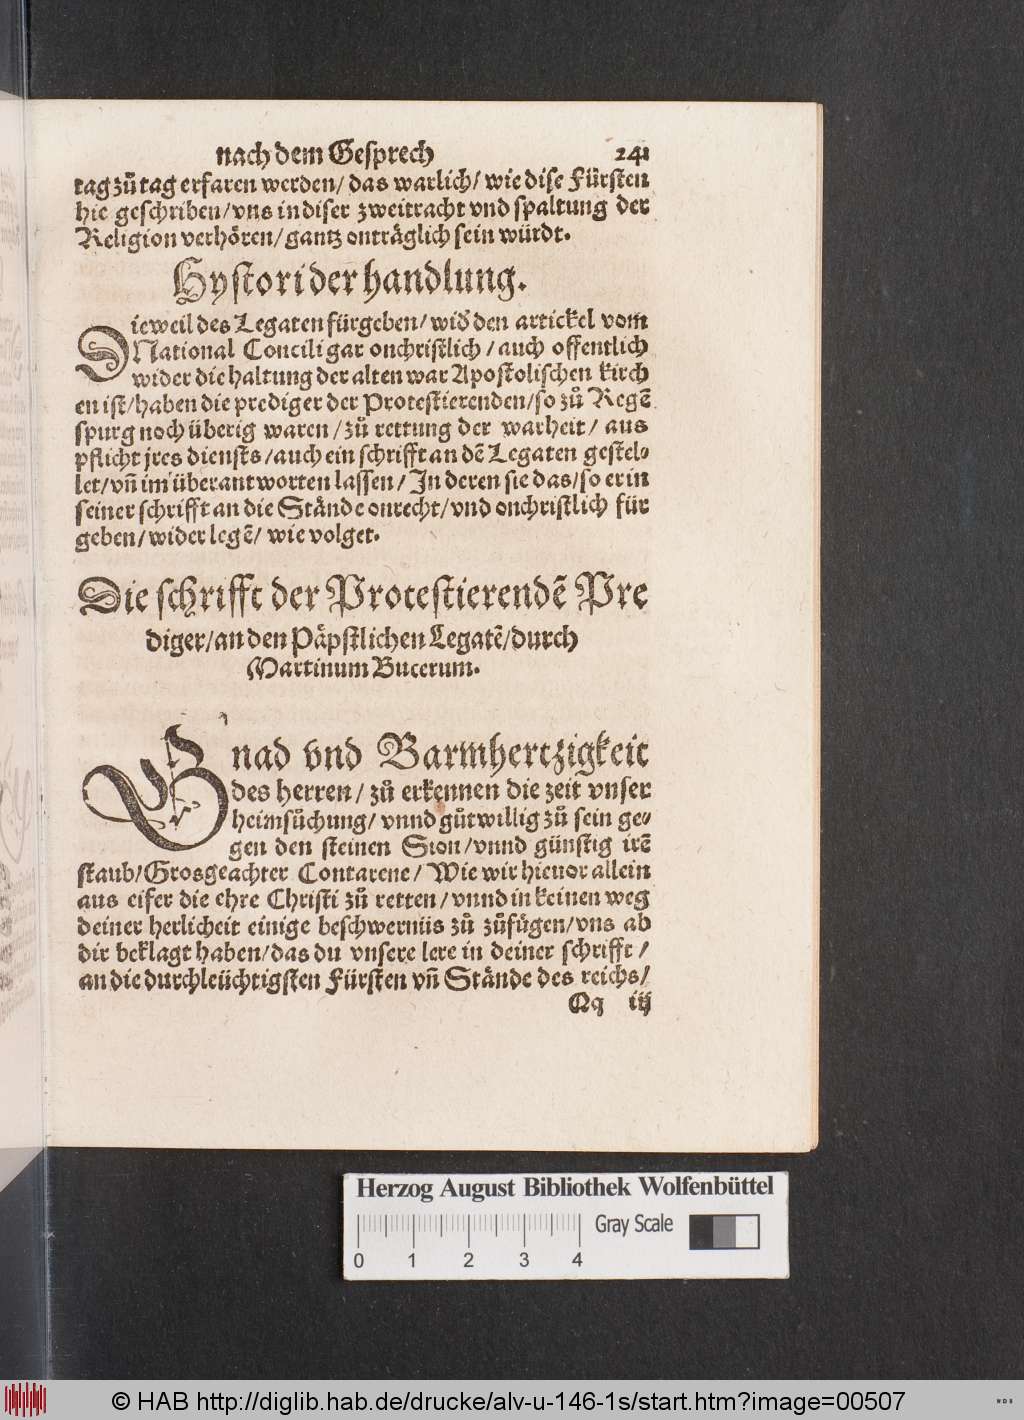 nach dem Gesprech 241
tag zů tag erfaren werden/ das warlich/ wie dise Fürsten
hie geschriben/ vns in diser zweitracht vnd spaltung der
Religion verhören/ gantz onträglich sein würdt.
Hystori der handlung.
Dieweil des Legaten fürgeben/ wid̕ den artickel vom
National Concili gar onchristlich / auch offentlich
wider die haltung der alten war Apostolischen kirch
en ist/ haben die prediger der Protestierenden/ so zů Regē
spurg noch überig waren / zů rettung der warheit/ aus
pflicht jres diensts / auch ein schrifft an dē Legaten gestel-
let/ vñ im überantworten lassen / In deren sie das/ so er in
seiner schrifft an die Stände onrecht/ vnd onchristlich für
geben/ wider legē/ wie volget.
Die schrifft der Protestierendē Pre
diger/ an den Päpstlichen Legatē/ durch
Martinum Bucerum.
Gnad vnd Barmhertzigkeit
des herren/ zů erkennen die zeit vnser
heimsůchung/ vnnd gůtwillig zů sein ge-
gen den steinen Sion/ vnnd günstig irē
staub/ Grosgeachter Contarene/ Wie wir hieuor allein
aus eifer die ehre Christi zů retten/ vnnd in keinen weg
deiner herlicheit einige beschwerniis zů zůfügen/ vns ab
dir beklagt haben/ das du vnsere lere in deiner schrifft /
an die durchleüchtigsten Fürsten vñ Stände des reichs/
Qq iij
Herzog August Bibliothek Wolfenbüttel
Gray Scale
0 1 2 3 4
© HAB http://diglib.hab.de/drucke/alv-u-146-1s/start.htm?image=00507